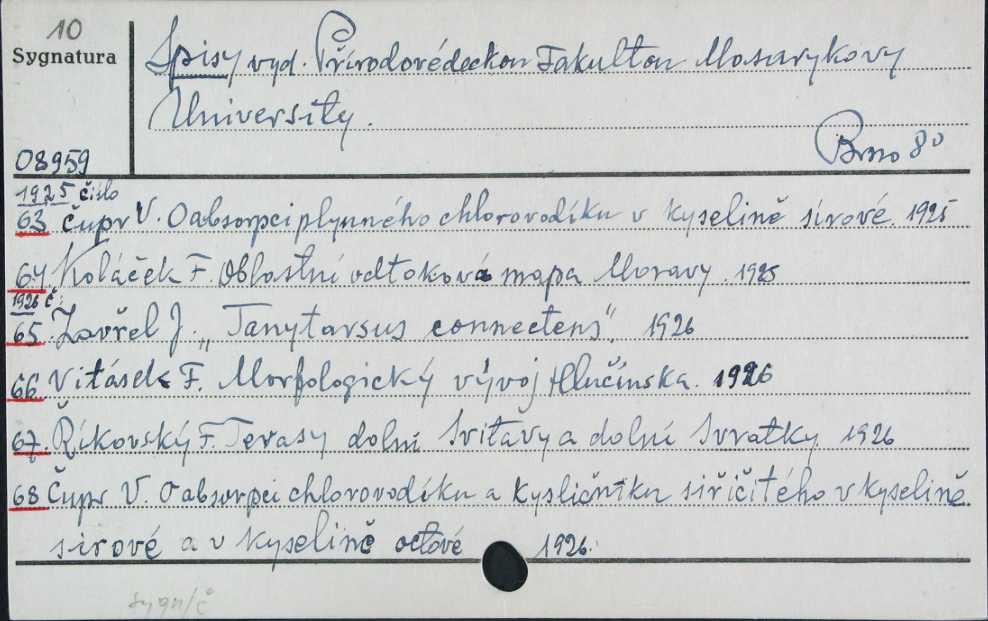 10
Sygnatura
Spisy vyd. Přírodovédeckou Fakultou Masarykovy
University.
Brno 8°
08959
1925 číslo
63 Čupr V. O absorpci plynného chlorovodíku v kyselině sírové. 1925
64 Koláček F. Oblastní odtoková mapa Moravy. 1925
1926 č:
65 Zavřel J. „Tanytarsus connectens". 1926
66 Vitásek F. Morfologický vývoj Hlučínska. 1926
67. Říkovský F. Terasy dolní Svitavy a dolní Svratky 1926
68 Čupr V. O absorpci chlorovodíku a kysličníku siřičitého v kyselině
sirové a v kyselině octové 1926.
sygn/č